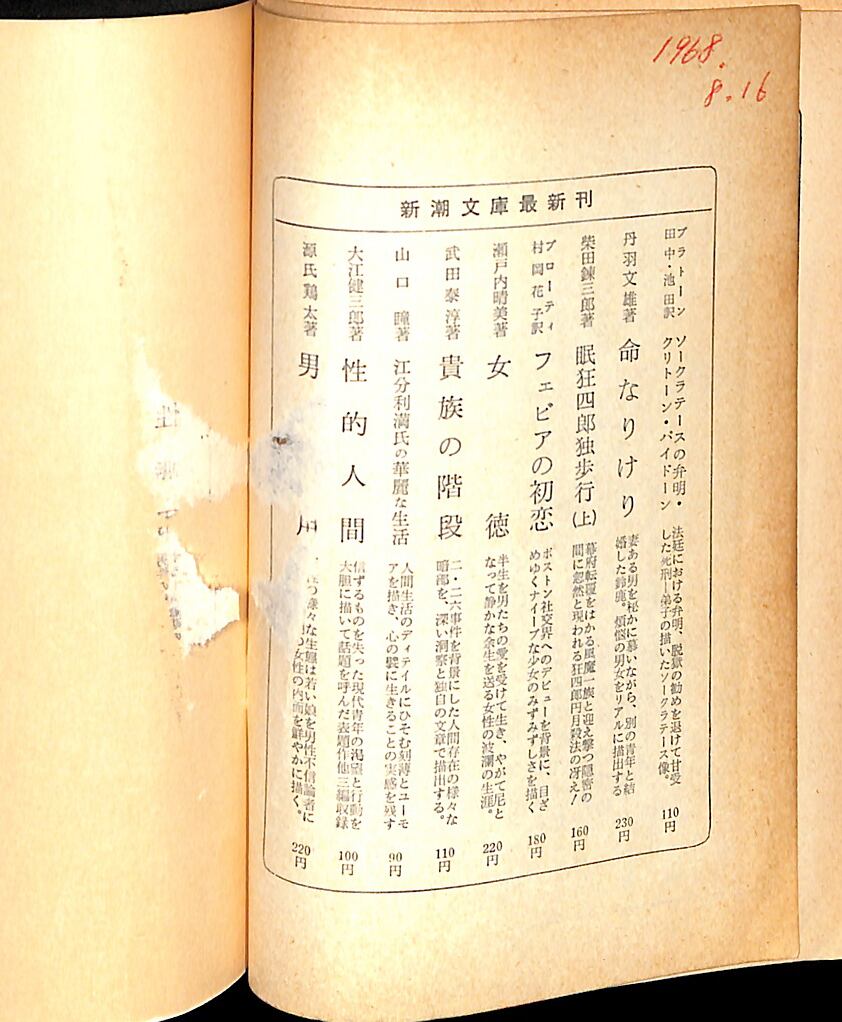 1968.
8.16
新潮文庫最新刊
プラトーン
田中・池田訳
ソークラテースの弁明・
クリトーン・パイドーン
法廷における弁明、脱獄の勧めを退けて甘受
した死刑―弟子の描いたソークラテース像。
110円
丹羽文雄著
命なりけり
妻ある男を秘かに慕いながら、別の青年と結
婚した鈴鹿。煩悩の男女をリアルに描出する
230円
柴田錬三郎著
眠狂四郎独歩行(上)
幕府転覆をはかる風魔一族と迎え撃つ隠密の
間に忽然と現われる狂四郎円月殺法の冴え!
160円
ブローティ
村岡花子訳
フェビアの初恋
ボストン社交界へのデビューを背景に、目ざ
めゆくナイーブな少女のみずみずしさを描く
180円
瀬戸内晴美著
女徳
半生を男たちの愛を受けて生き、やがて尼と
なって静かな余生を送る女性の波瀾の生涯。
220円
武田泰淳著
貴族の階段
二・二六事件を背景にした人間存在の様々な
暗部を、深い洞察と独自の文章で描出する。
110円
山口瞳著
江分利満氏の華麗な生活
人間生活のディテイルにひそむ刻薄とユーモ
アを描き、心の襞に生きることの実感を残す
90円
大江健三郎著
性的人間
信ずるものを失った現代青年の渇望と行動を
大胆に描いて話題を呼んだ表題作他三編収録
100円
源氏鶏太著
男
様々な生態は若い娘を男性不信論者に
女性の内面を鮮やかに描く。
220円